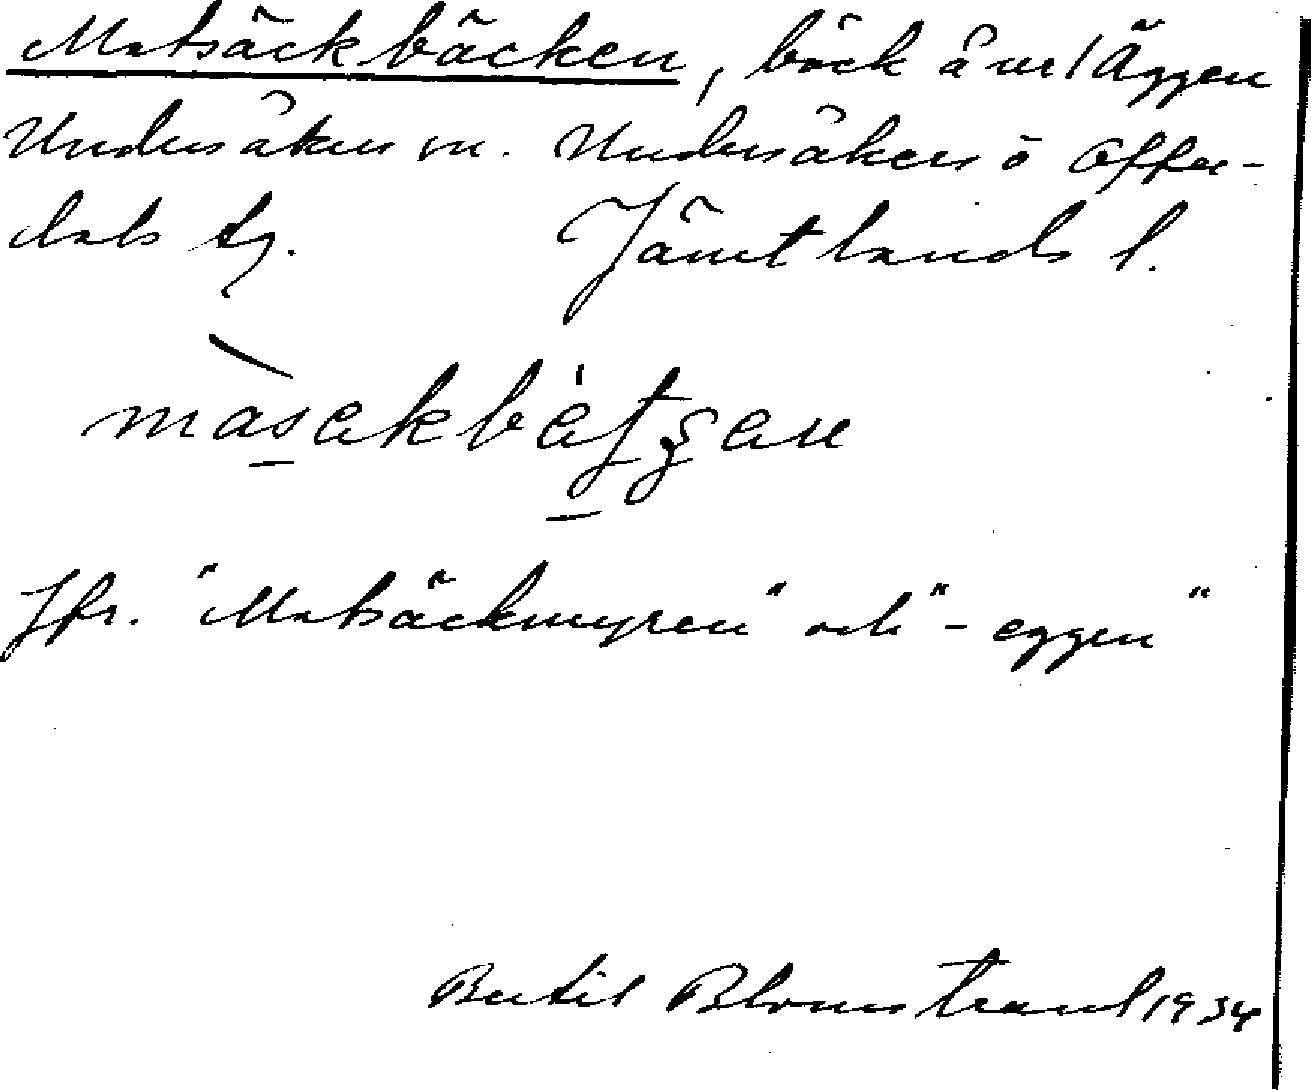 Matsäckbäcken, bäck å vr/Äggen
Undersåkers sn. Undersåkers o Offer-
dals tg. Jämtlands l.
màsekbètʂen
Jfr. "Matsäckmyren" och "-eggen"
Bertil Blomstrand 1934